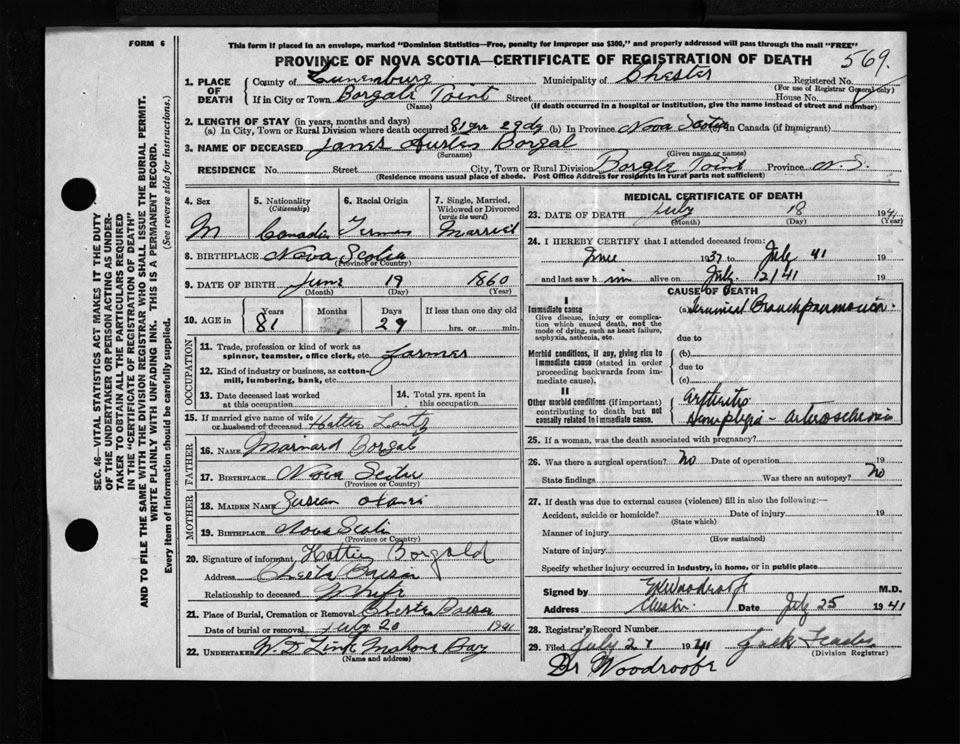 FORM 6
This form if placed in an envelope, marked "Dominion Statistics—Free, penalty for improper use $300," and properly addressed will pass through the mail "FREE"
PROVINCE OF NOVA SCOTIA—CERTIFICATE OF REGISTRATION OF DEATH
569.
SEC. 46—VITAL STATISTICS ACT MAKES IT THE DUTY
OF THE UNDERTAKER OR PERSON ACTING AS UNDER-
TAKER TO OBTAIN ALL THE PARTICULARS REQUIRED
IN THE "CERTIFICATE OF REGISTRATION OF DEATH"
AND TO FILE THE SAME WITH THE DIVISION REGISTRAR WHO SHALL ISSUE THE BURIAL PERMIT.
WRITE PLAINLY WITH UNFADING INK. THIS IS A PERMANENT RECORD.
Every item of information should be carefully supplied. (See reverse side for instructions.)
1. PLACE OF DEATH County of Lunenburg Municipality of Chester Registered No.
(For use of Registrar General only)
If in City or Town Borgals Point Street House No.
(Name) (If death occurred in a hospital or institution, give the name instead of street and number)
2. LENGTH OF STAY (in years, months and days)
(a) In City, Town or Rural Division where death occurred 81 yr 29 dy (b) In Province Nova Scotia in Canada (if immigrant)
3. NAME OF DECEASED Austen Borgal
(Surname) (Given name or names)
RESIDENCE No. Street City, Town or Rural Division Borgals Point Province N.S.
(Residence means usual place of abode. Post Office Address for residents in rural parts not sufficient)
4. Sex
M
5. Nationality (Citizenship)
Canadian
6. Racial Origin
German
7. Single, Married, Widowed or Divorced (write the word)
Married
8. BIRTHPLACE Nova Scotia
(Province or Country)
9. DATE OF BIRTH June 19 1860
(Month) (Day) (Year)
10. AGE in Years Months Days If less than one day old
81 29 hrs. or min.
OCCUPATION
11. Trade, profession or kind of work as spinner, teamster, office clerk, etc. farmer
12. Kind of industry or business, as cotton-mill, lumbering, bank, etc.
13. Date deceased last worked at this occupation
14. Total yrs. spent in this occupation
15. If married give name of wife or husband of deceased Hattie Lantz
FATHER
16. NAME Mainard Borgal
17. BIRTHPLACE Nova Scotia
(Province or Country)
MOTHER
18. MAIDEN NAME
19. BIRTHPLACE Nova Scotia
(Province or Country)
20. Signature of informant Hattie Borgald
Address Chester Basin
Relationship to deceased Wife
21. Place of Burial, Cremation or Removal Chester Basin
Date of burial or removal July 20 1941
22. UNDERTAKER W. D. Link Mahone Bay
(Name and address)
MEDICAL CERTIFICATE OF DEATH
23. DATE OF DEATH July 18 1941
(Month) (Day) (Year)
24. I HEREBY CERTIFY that I attended deceased from:
1937 to July 41 19
and last saw him alive on July 12/41 19
CAUSE OF DEATH
I
Immediate cause
Give disease, injury or complication which caused death, not the mode of dying, such as heart failure, asphyxia, asthenia, etc.
(a) Terminal Bronchpneumonia.
due to
Morbid conditions, if any, giving rise to immediate cause (stated in order proceeding backwards from immediate cause).
(b)
due to
(c)
II
Other morbid conditions (if important) contributing to death but not causally related to immediate cause.
Arthritis
Hemiplegia - arteriosclerosis
25. If a woman, was the death associated with pregnancy?
26. Was there a surgical operation? No Date of operation 19
State findings Was there an autopsy? No
27. If death was due to external causes (violence) fill in also the following:—
Accident, suicide or homicide? Date of injury 19
(State which)
Manner of injury
(How sustained)
Nature of injury
Specify whether injury occurred in industry, in home, or in public place
Signed by Woodroofe M.D.
Address Chester Date July 25 1941
28. Registrar's Record Number
29. Filed July 27 1941 Jack
(Division Registrar)
Dr Woodroofe